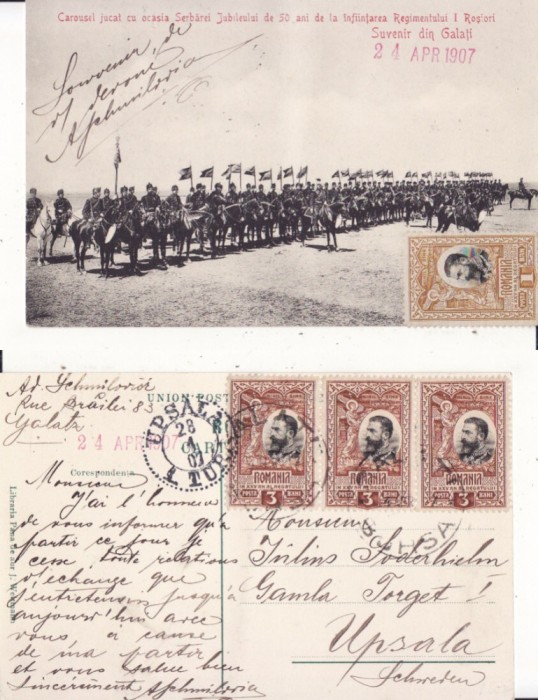 Carousel jucat cu ocasia Serbărei Jubileului de 50 ani de la înființarea Regimentului I Roșiori
Suvenir din Galați
24 APR 1907
Souvenir de
A Schmilovici
1
ROMANIA
1
Ad. Schmilovici
Rue Brăilei 83
Galatz
24 APR 1907
UNION POST
CAR
UPSALA
28
4
07
1. TUR
ROMANIA
POSTA 3 BANI
ROMANIA
POSTA 3 BANI
ROMANIA
POSTA 3 BANI
Corespondența
Monsieur
J'ai l'honneur
de vous informer qu'à
partir ce jour je
cesse toute relations
d'echange que
j'entretenais jusqu'à
aujourd'hui avec
vous a cause
de ma partir
et vous salue bien
sincèrement A Schmilovici
Monsieur
Julius Söderhielm
Gamla Torget 1
Upsala
Schweden
Libraria